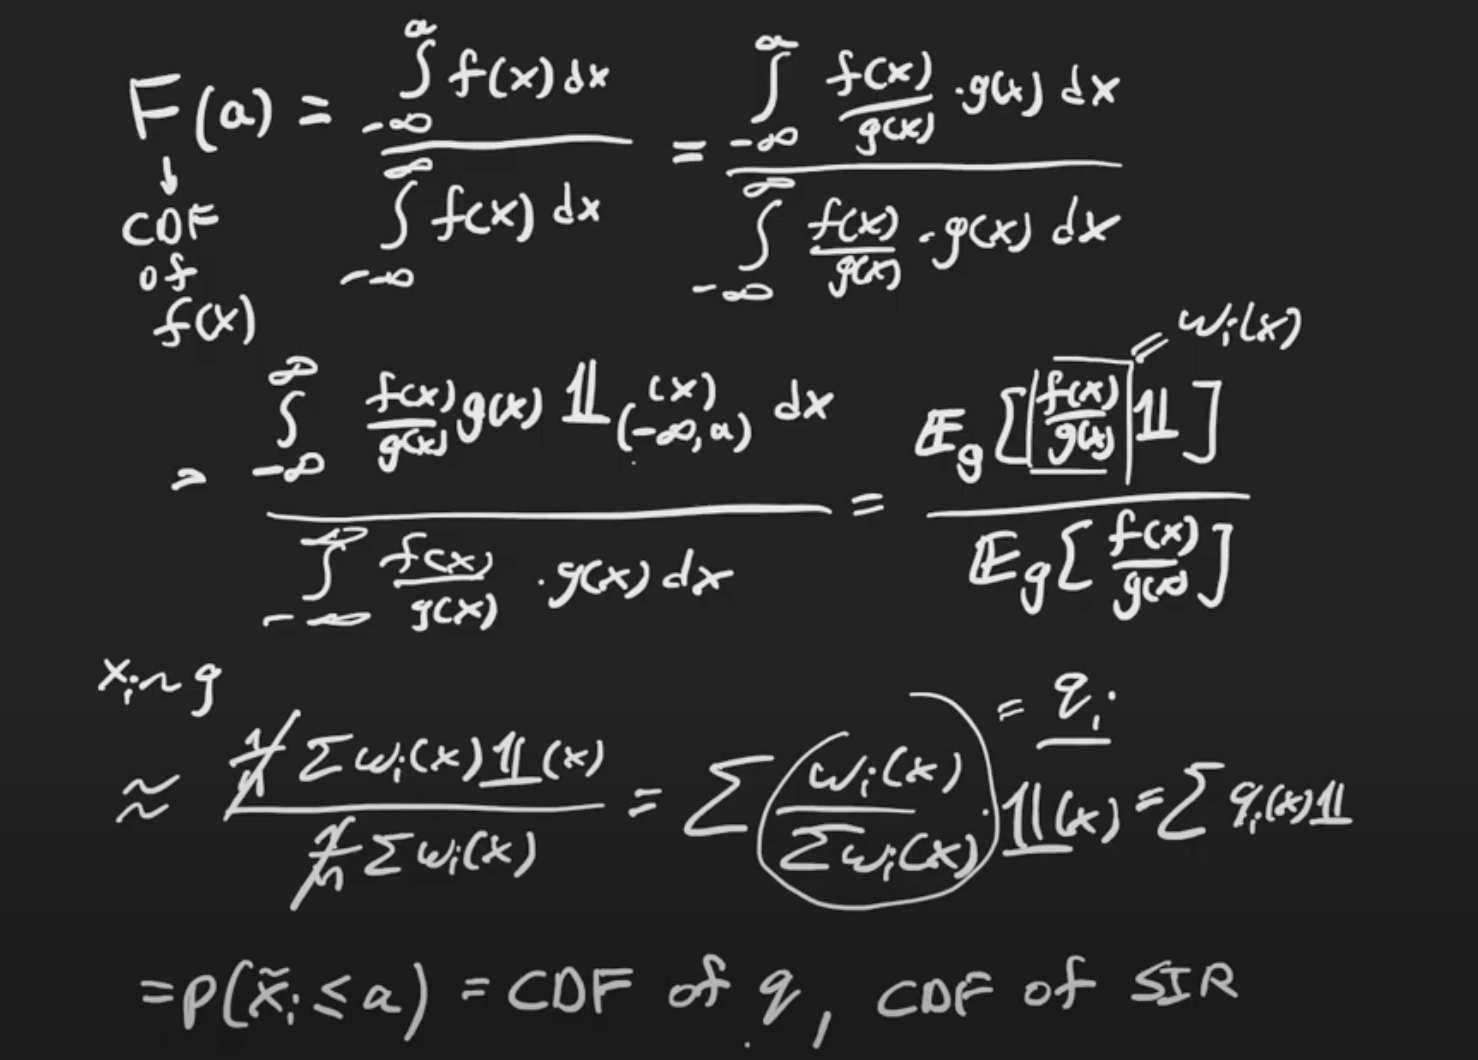 F(a) = ∫_{-∞}^{a} f(x) dx / ∫_{-∞}^{∞} f(x) dx = ∫_{-∞}^{a} f(x)/g(x) · g(x) dx / ∫_{-∞}^{∞} f(x)/g(x) · g(x) dx
↓
CDF
of
f(x)
= w_i(x)
= ∫_{-∞}^{∞} f(x)/g(x) g(x) 𝟙_{(-∞,a)}(x) dx / ∫_{-∞}^{∞} f(x)/g(x) · g(x) dx = 𝔼_g[f(x)/g(x) 𝟙] / 𝔼_g[f(x)/g(x)]
x_i ~ g
= q_i
≈ 1/n Σ w_i(x) 𝟙(x) / 1/n Σ w_i(x) = Σ w_i(x) / Σ w_i(x) · 𝟙(x) = Σ q_i(x) 𝟙
= p(x̃_i ≤ a) = CDF of q, CDF of SIR